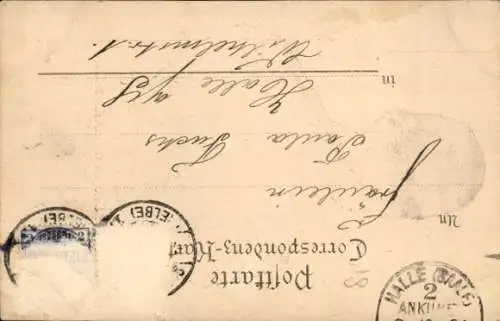 Postkarte
Correspondenz-Kart
An
Fräulein
Paula Fuchs
in Halle a/S
Wilhelmstr. 1.
(ELBE)
(ELBE)
HALLE (SAALE)
2
ANKUNFT
18